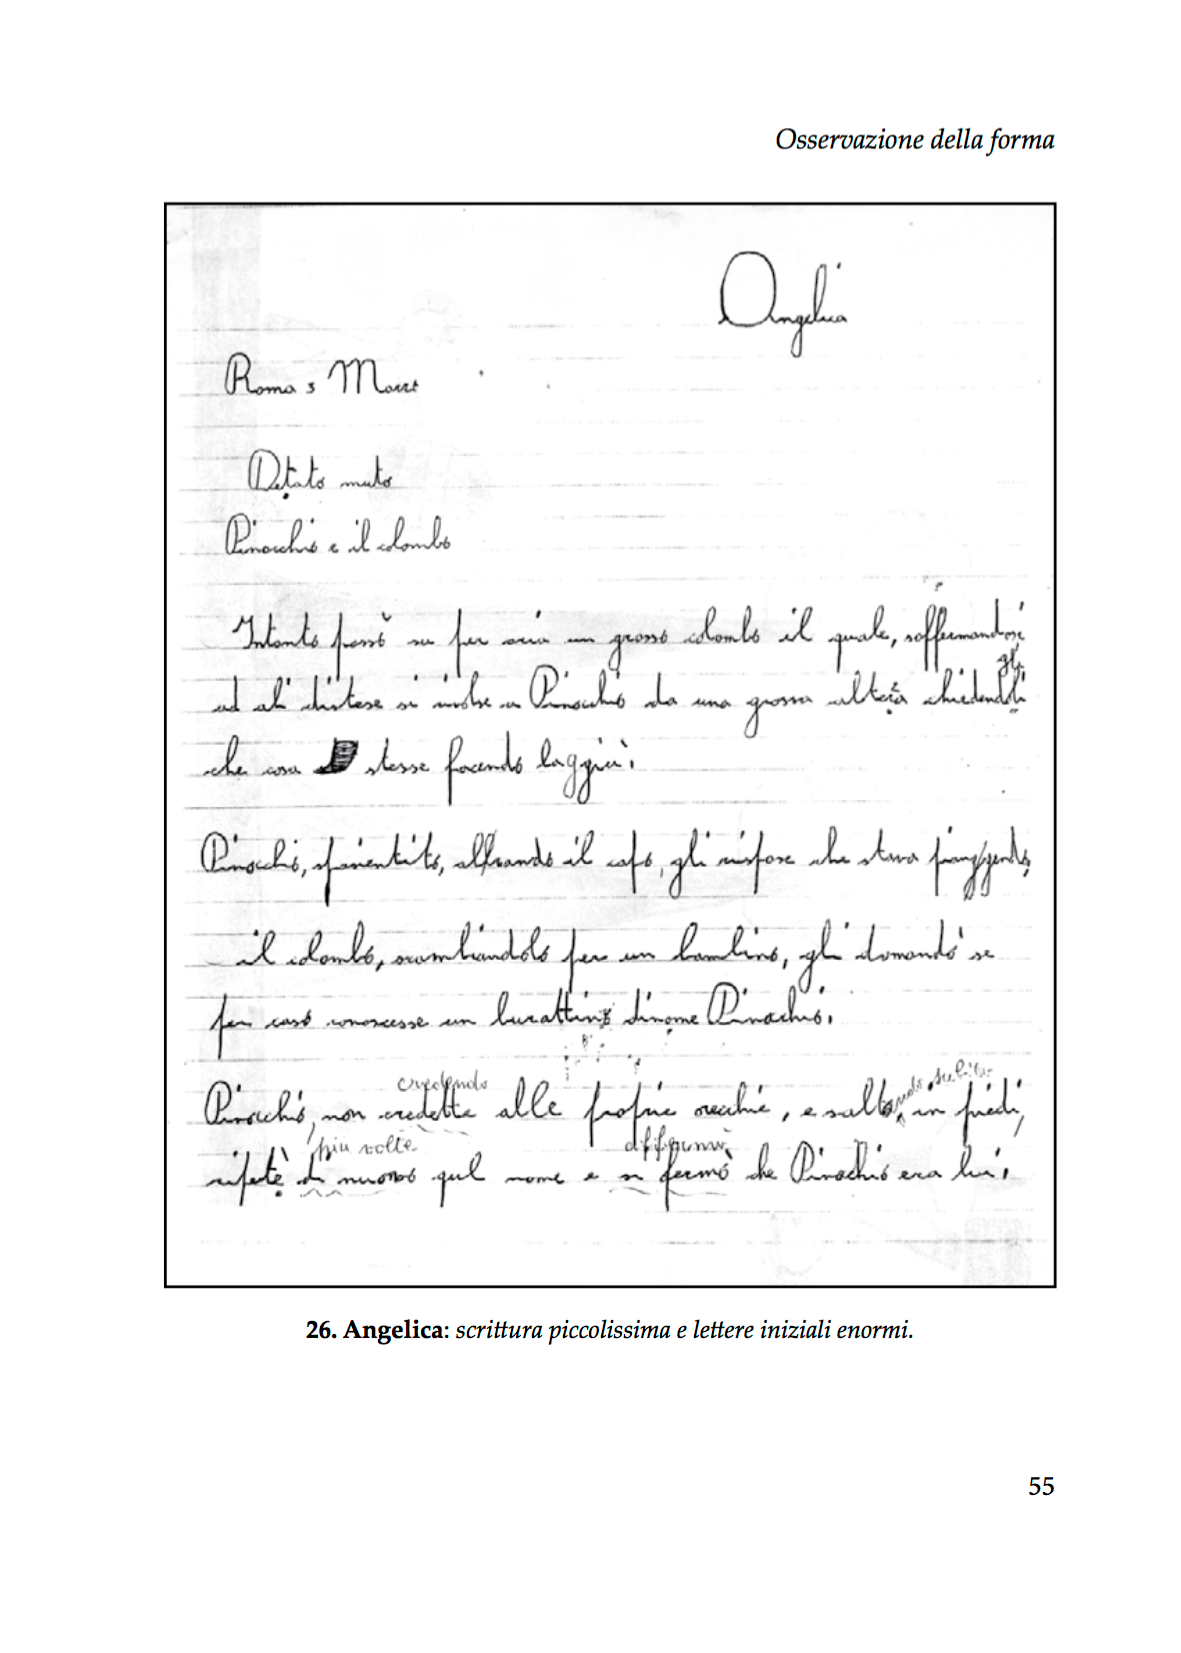 Osservazione della forma
Angelica
Roma 3 Marzo
Detato muto
Pinochio e il colombo
Intanto passò su per aria un grosso colombo il quale, soffermandosi
gli
ad ali distese si rivolse a Pinochio da una grossa alteza chiedendoli
che cosa stesse facendo laggiù.
Pinochio, spaventito, alzando il capo, gli rispose che stava piangendo,
il colombo, scambiandolo per un bambino, gli domandò se
per caso conoscesse un burattino di nome Pinochio.
credendo subito
Pinochio, non credette alle proprie orecchie, e saltò in piedi,
più volte affermò
ripetè di nuovo quel nome e si fermò che Pinochio era lui.
26. Angelica: scrittura piccolissima e lettere iniziali enormi.
55